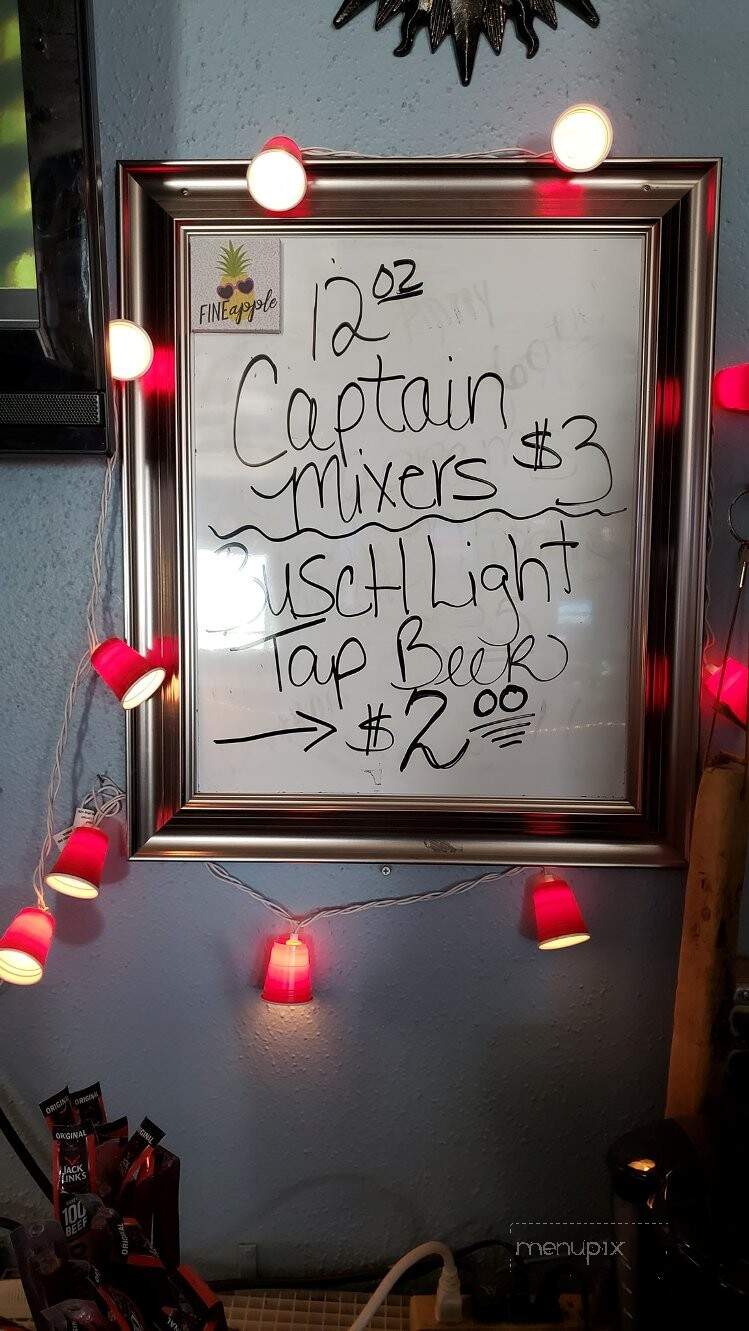 FINEapple
12 oz
Captain
mixers $3
BuscH Light
Tap Beer
→ $2.00
ORIGINAL
ORIGINAL
ORIGINAL
JACK
LINK'S
100
BEEF
ORIGINAL
menupix